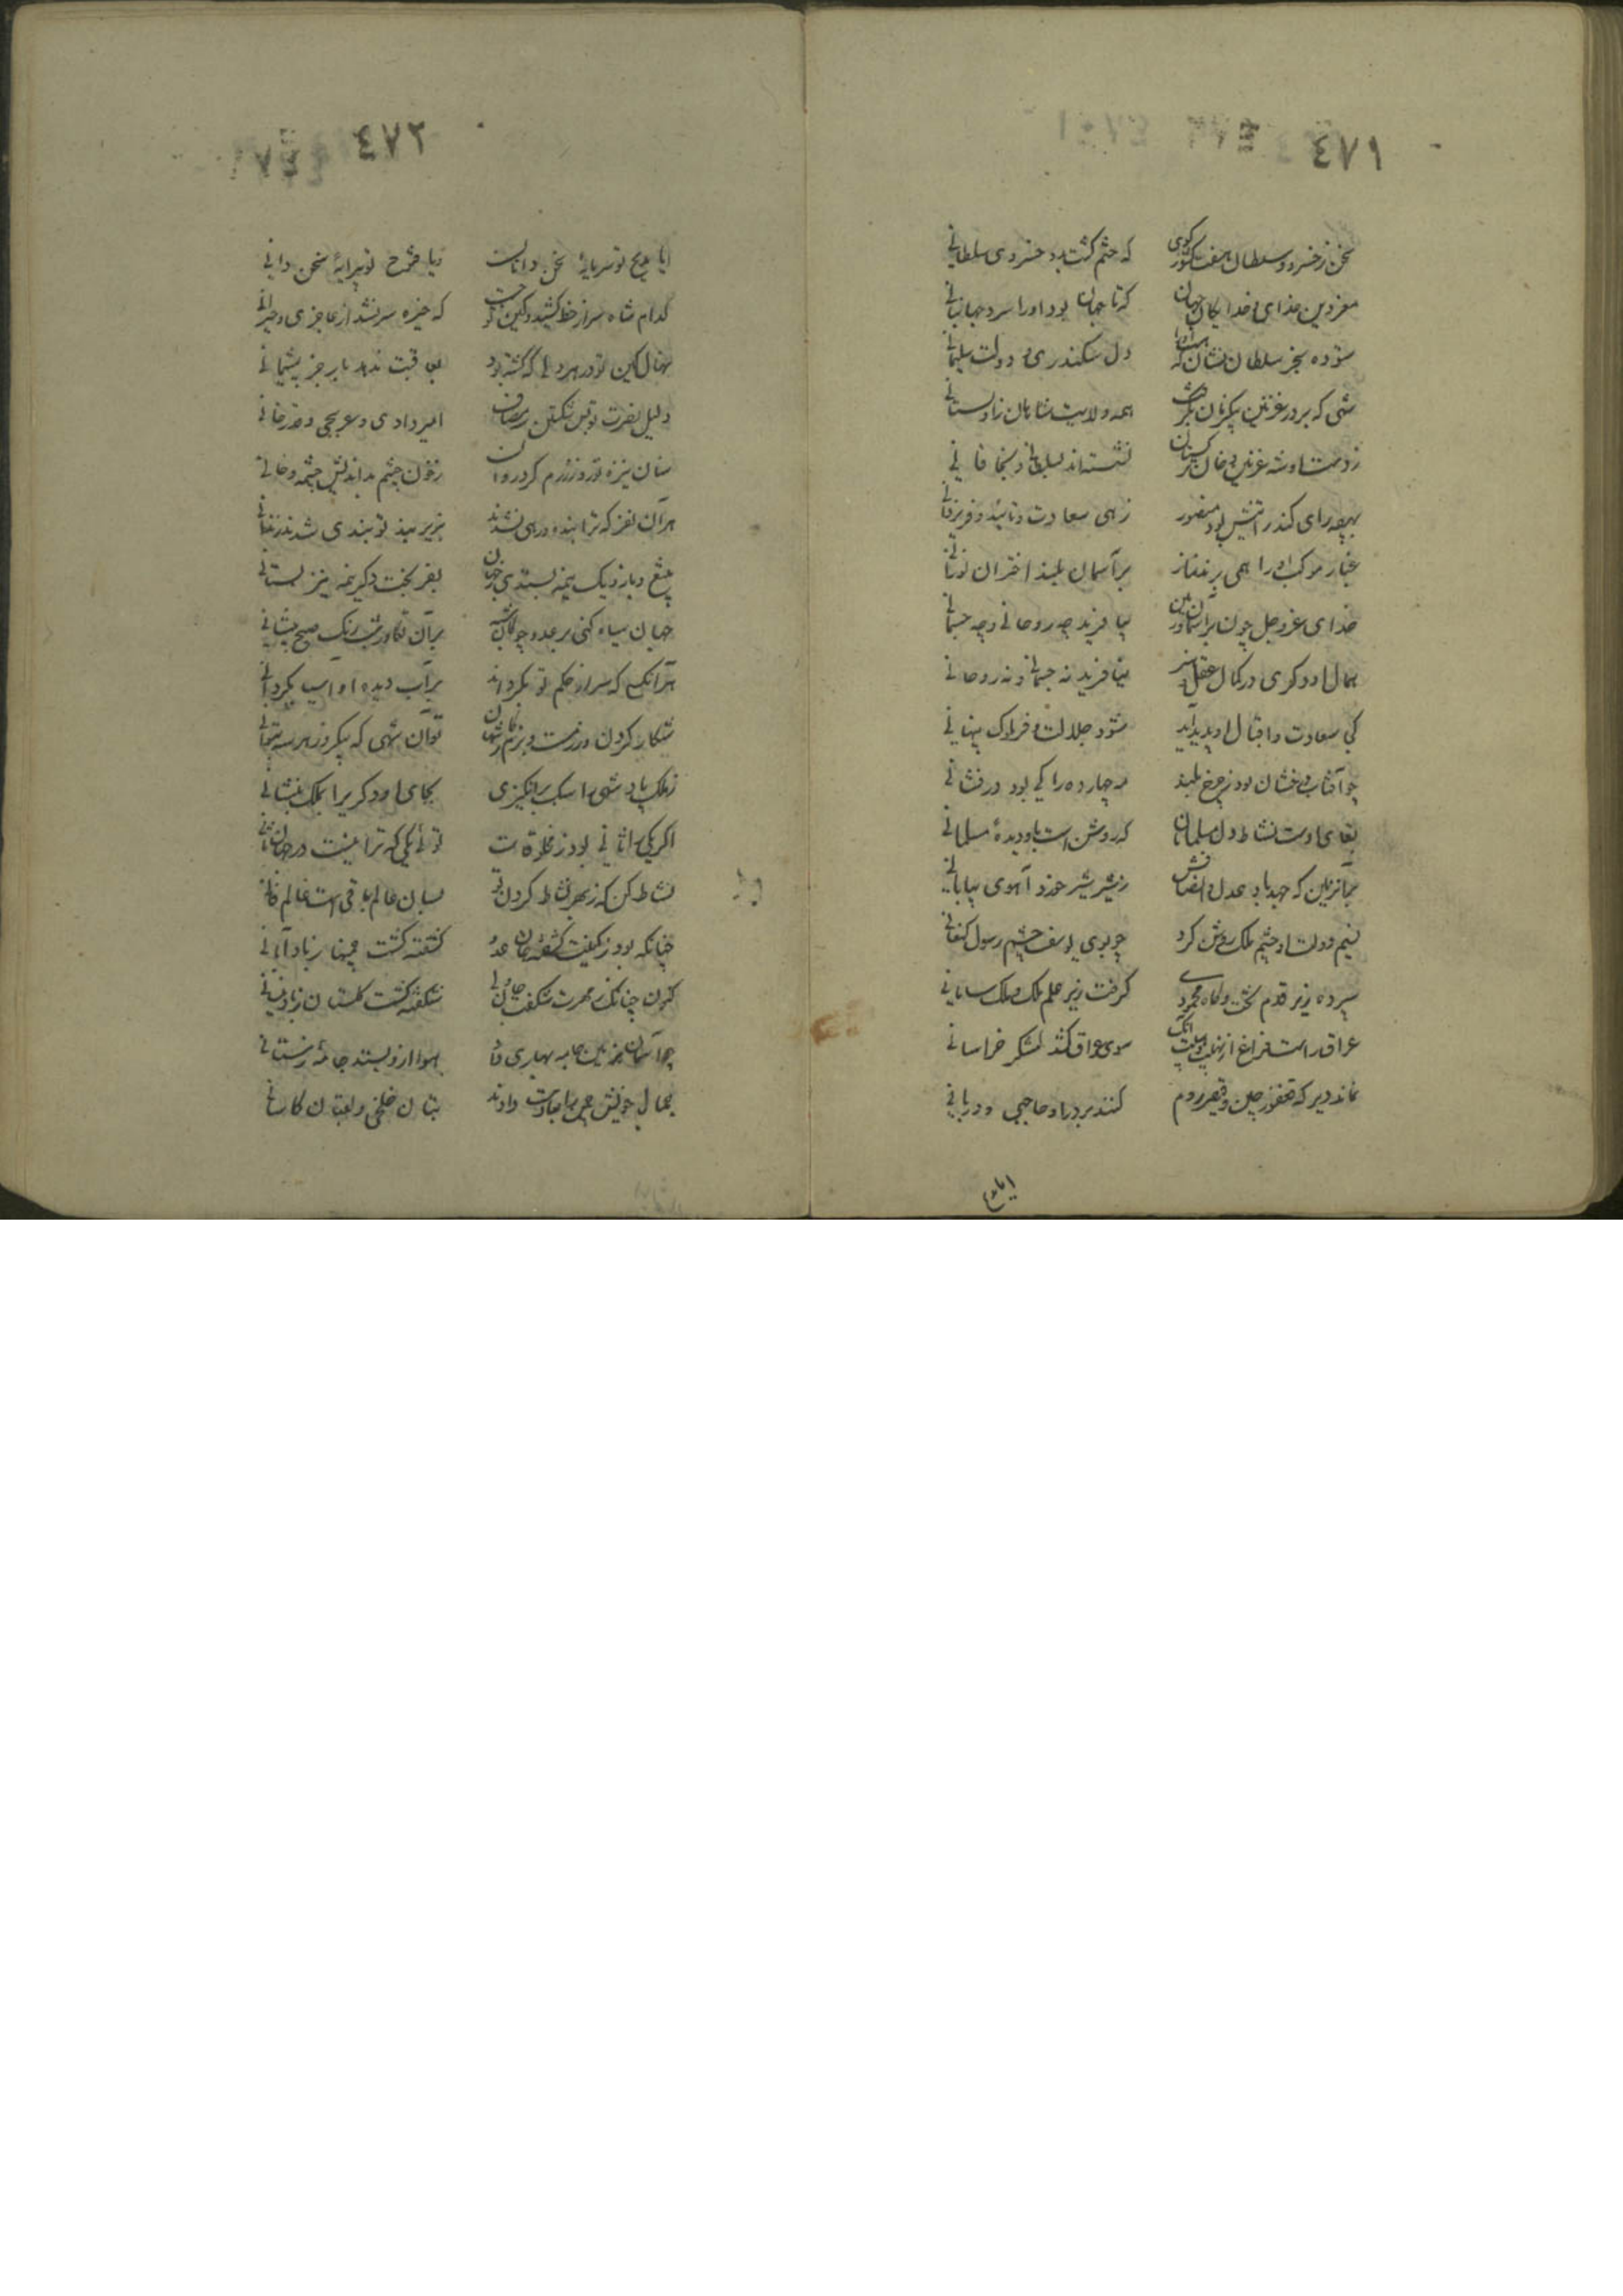 ٤٧١
سخن ز خسرو و سلطان هفت کشور کوی که ختم کشت بدو خسروی و سلطانی
معز دین خدای و خدایکان جهان که تا جهان بود او را سزد جهانبانی
ستوده سنجر سلطان نشان که دل سکندری و دولت سلیمانی
شهی که بر در غزنین همه ولایت شاهان زاولستانی
ز دست او شه غزنین و خان ترکستان نشسته اند بسلطانی و بخاقانی
بهر چه رای کند رهی سعادت و تائید و فر یزدانی
غبار موکب او را همی برند نماز بر آسمان بلند اختران نورانی
خدای عز و جل چون بیافریند چه روحانی و چه جسمانی
همال او دکری در کمال عقل و هنر نیافرید نه جسمانی و نه روحانی
کی سعادت و اقبال او پدید آید شود جلالت و فر ملوک پنهانی
چو آفتاب درخشان بود ز چرخ بلند مه چهارده را کی بود درفشانی
بقای اوست نشاط دل مسلمانان که روشن است باو دیدهٔ مسلمانی
بدآنزمین که مهد باد عدل و انصافش ز شیر شیر خورد آهوی بیابانی
نسیم دولت او چشم ملک روشن کرد چو بوی یوسف چشم رسول کنعانی
سپرده زیر قدم تخت و کاه محمودی کرفت زیر علم ملک و ملک سامانی
عراق راست فراغ از نهیب سوی عراق کشد لشکر خراسانی
نماند دیر که فغفور چین و قیصر روم کنند بر در او حاجبی و دربانی
ایا مدیح
٤٧٢
ایا مدیح تو سرمایهٔ سخن دانست و یا فتوح تو پیرایهٔ سخن دانی
کدام شاه سر از خط کشید و کین تو جست که خیره سر نشد از عاجزی و حیرانی
نهال کین تو در هر دلی که کشته بود بعاقبت ندهد بار جز پشیمانی
دلیل نصرت تو بس شکستن امیر دادی و عریجی و قدرخانی
سنان نیزه تو روز رزم کرد روان ز خون چشم بداندیش چشمه و خانی
هر آن نفر که ترا بنده و رهی نشدند بزیر بند تو بندی شدند و زندانی
بتیغ و بازو یک نیمه بستدی ز جهان بفر بخت دکر نیمه نیز بستانی
جهان سیاه کنی بر عدو چو بر آن تکاور شب رنک صبح پیشانی
هر آنکسی که سر از حکم تو بکرداند بر آب دیده او آسیا بکردانی
شکار کردن و رزمست و بزم توآن شهی که بیکروز هر سه بتوانی
ز ملک پادشهی را سبک برانکیزی بجای او دکری را بملک بنشانی
اکر یکی را ثانی بود ز مخلوقات توئی یکی که ترا نیست در جهان ثانی
نشاط کن که ز بهر نشاط کردن تو بسان عالم باقی است عالم فانی
چنانکه بود ز کینت کشفته جان عدو کشفته کشت چمنها ز باد آبانی
کنون چنانکه ز مهرت شکفت جان ولی شکفته کشت کلستان ز باد نیسانی
چو آسمان بزمین جامه بهاری داد هوا ازو بستد جامهٔ زمستانی
جمال خویش همی را بعاریت دادند بتان خلخی و لعبتان کاشانی